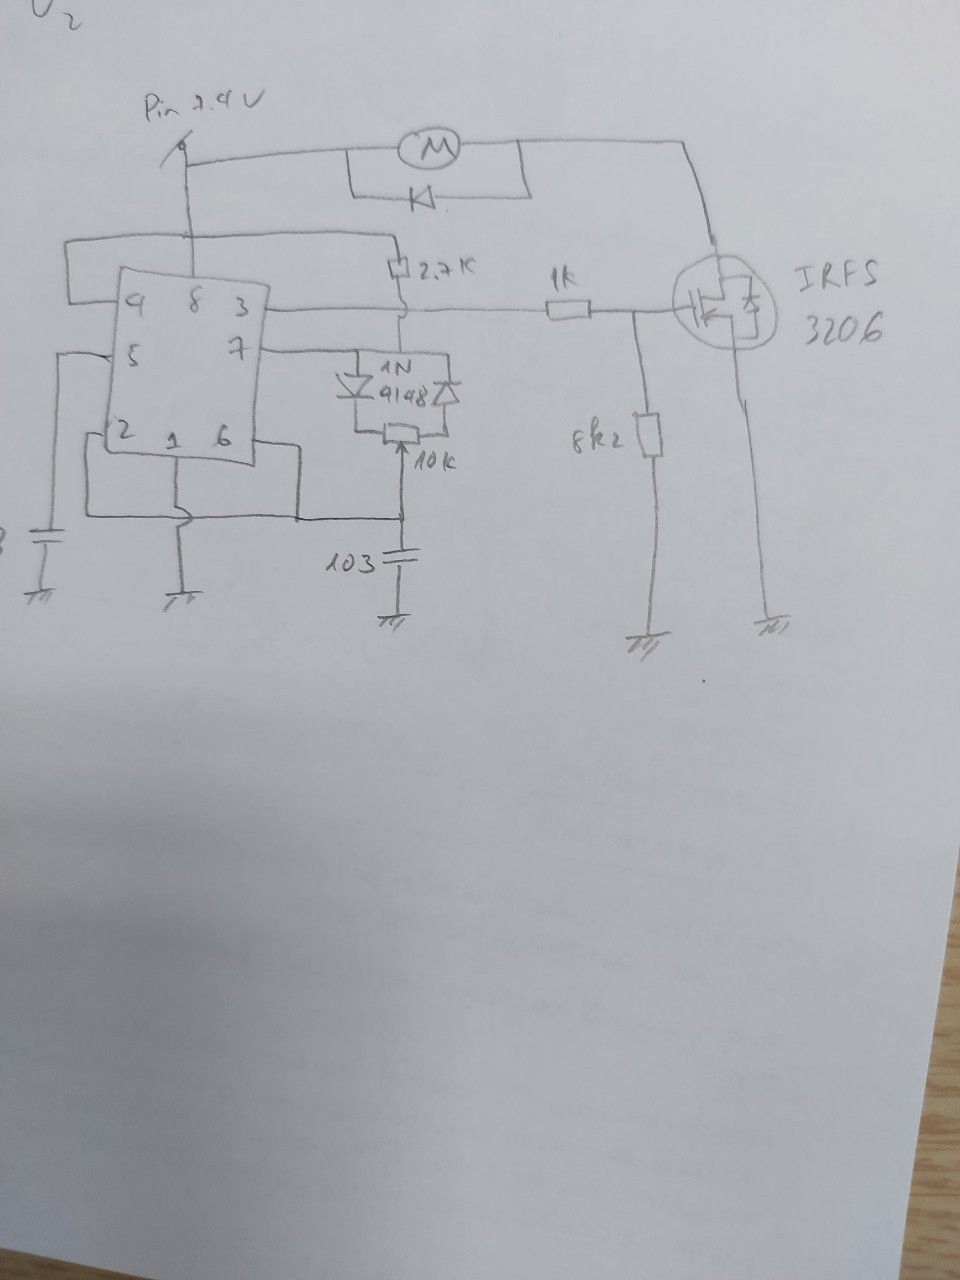 U2
Pin 7.4V
M
2.7K
1K
IRFS
3206
4 8 3
7
5
1N
4148
2 1 6
10K
8k2
103